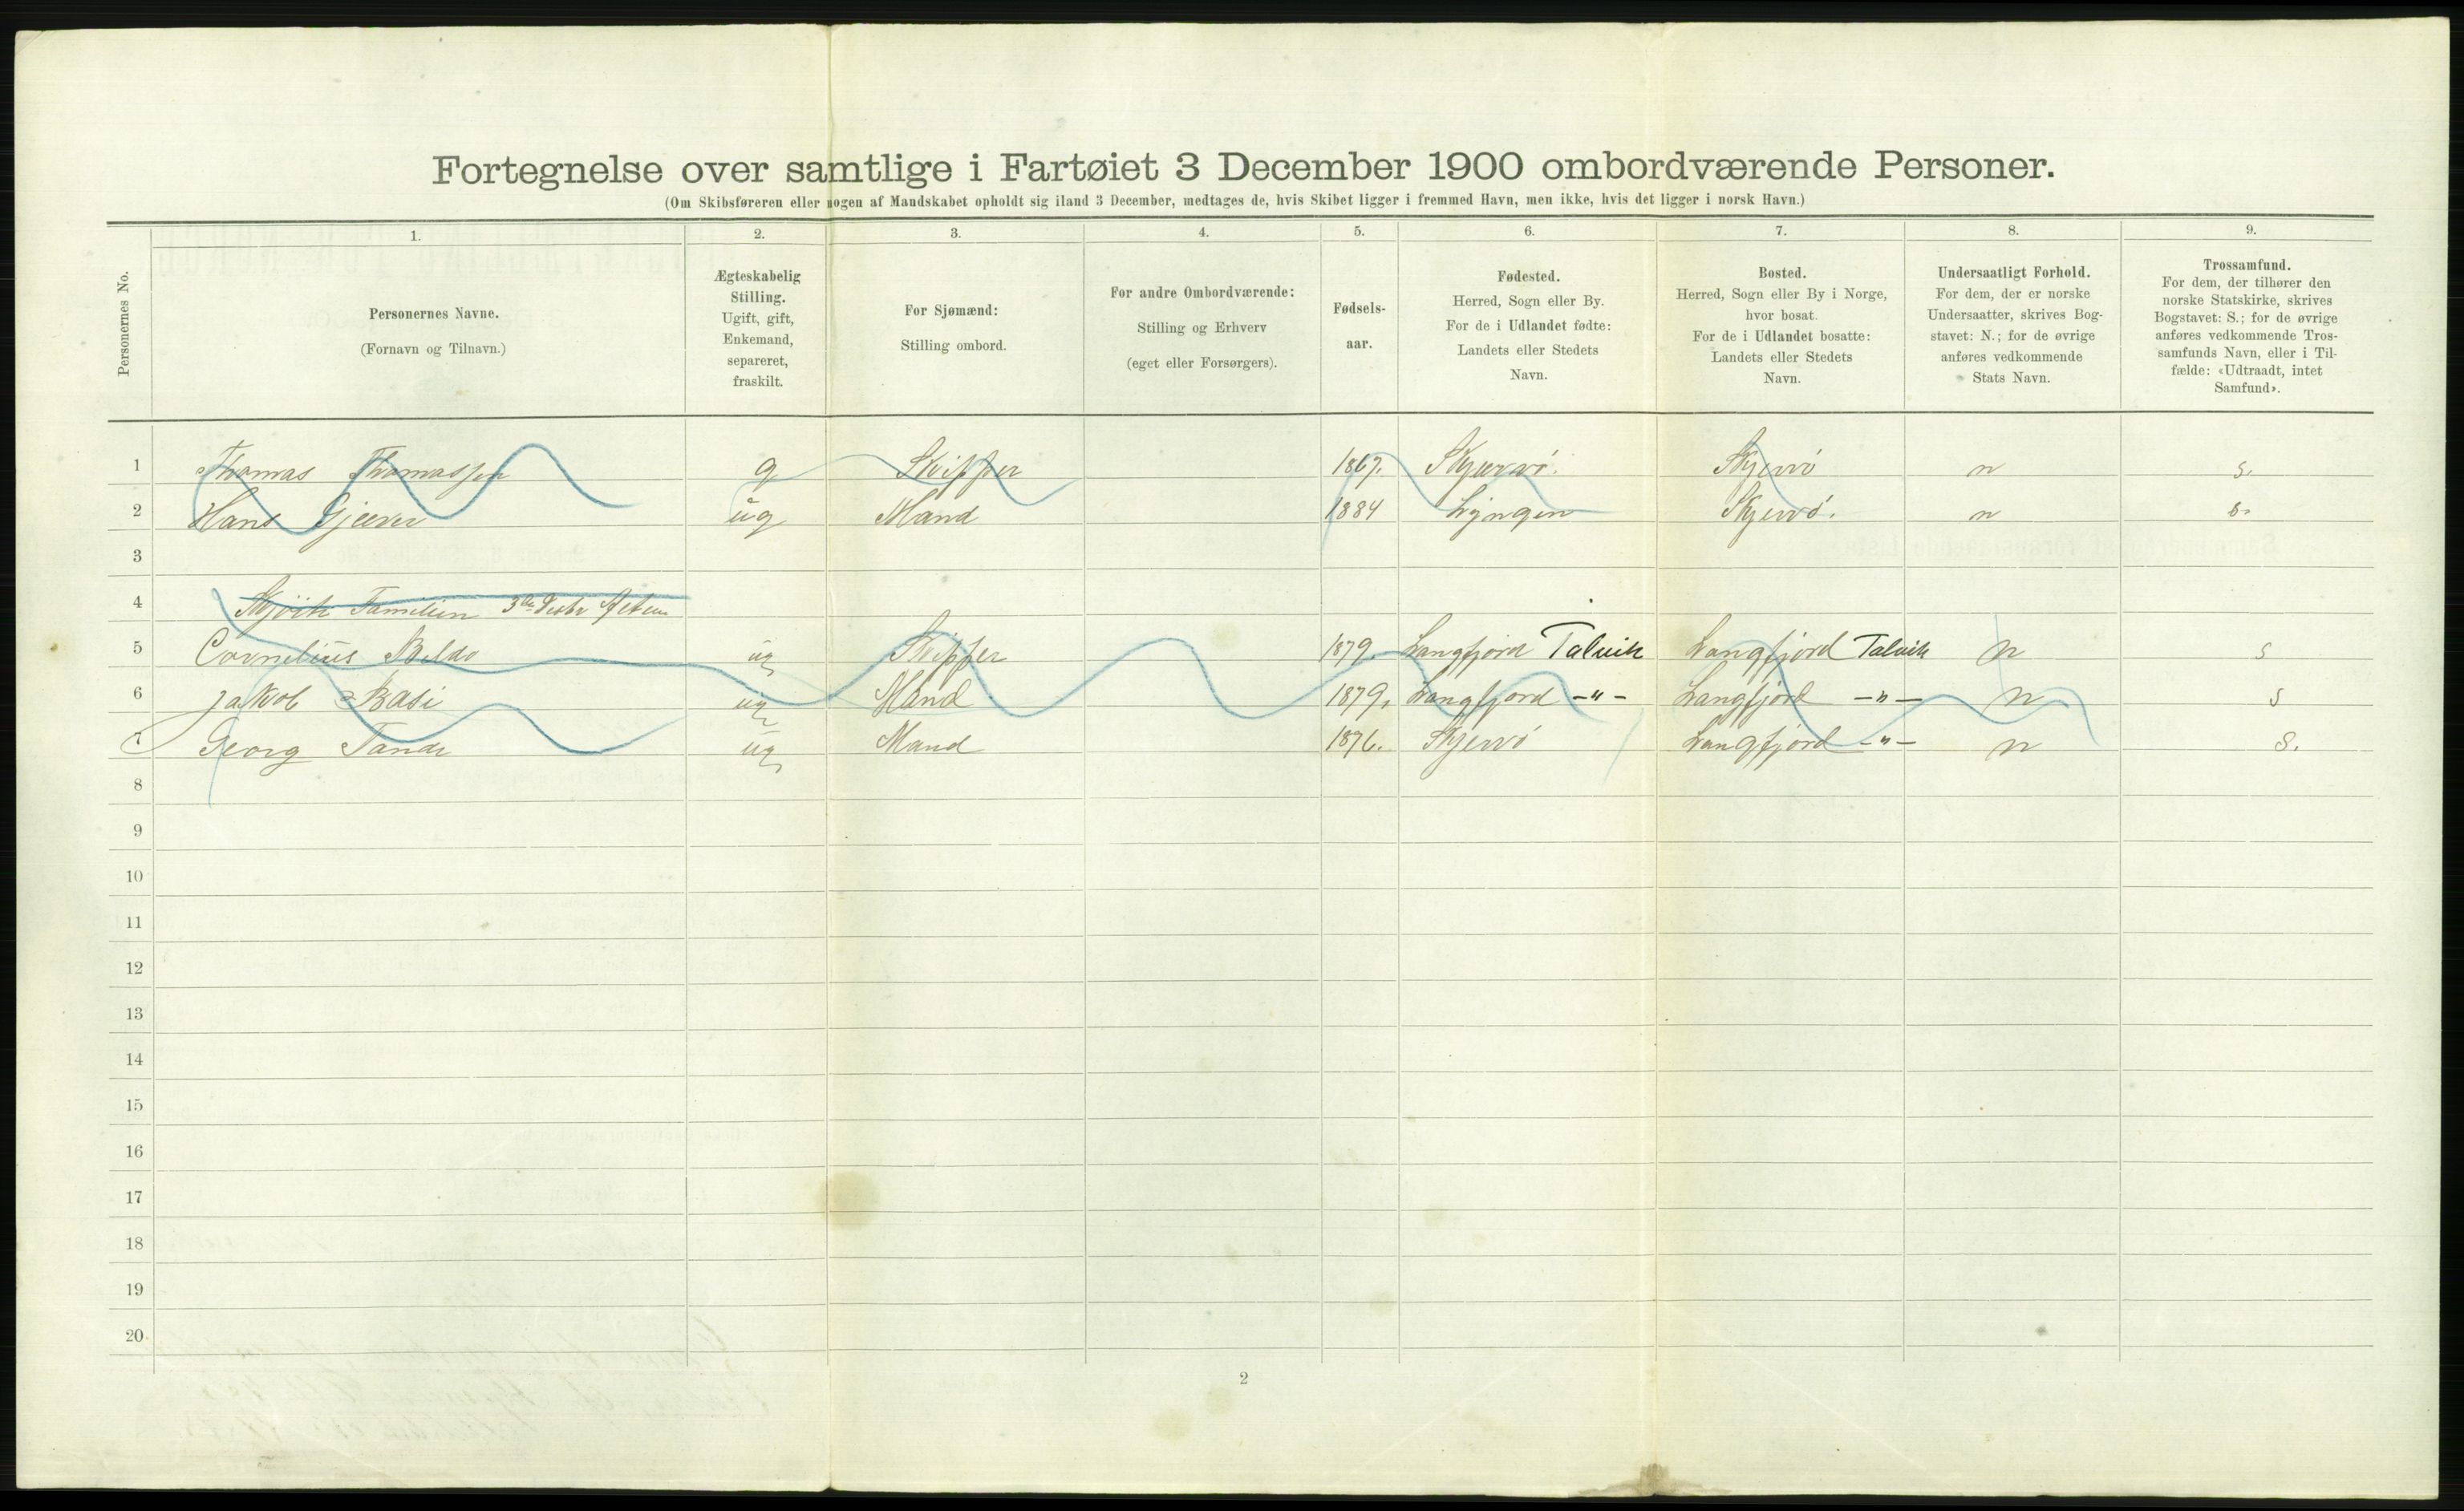 Fortegnelse over samtlige i Fartøiet 3 December 1900 ombordværende Personer.
(Om Skibsføreren eller nogen af Mandskabet opholdt sig iland 3 December, medtages de, hvis Skibet ligger i fremmed Havn, men ikke, hvis det ligger i norsk Havn.)
Personernes No.
1.
Personernes Navne.
(Fornavn og Tilnavn.)
2.
Ægteskabelig
Stilling.
Ugift, gift,
Enkemand,
separeret,
fraskilt.
3.
For Sjømænd:
Stilling ombord.
4.
For andre Ombordværende:
Stilling og Erhverv
(eget eller Forsørgers).
5.
Fødsels-
aar.
6.
Fødested.
Herred, Sogn eller By.
For de i Udlandet fødte:
Landets eller Stedets
Navn.
7.
Bosted.
Herred, Sogn eller By i Norge,
hvor bosat.
For de i Udlandet bosatte:
Landets eller Stedets
Navn.
8.
Undersaatligt Forhold.
For dem, der er norske
Undersaatter, skrives Bog-
stavet: N.; for de øvrige
anføres vedkommende
Stats Navn.
9.
Trossamfund.
For dem, der tilhører den
norske Statskirke, skrives
Bogstavet: S.; for de øvrige
anføres vedkommende Tros-
samfunds Navn, eller i Til-
fælde: «Udtraadt, intet
Samfund».
1 Thomas Thomassen g Skipper 1867. Skjervö. Skjervö n s.
2 Hans Gjæver ug Mand 1884 Lyngen Skjervö. n s.
3
4 Familien 3die
5 Cornelius ug Skipper 1879. Langfjord Talvik Langfjord Talvik n s
6 Jakob Basi ug Mand 1879. Langfjord -"- Langfjord -"- n s
7 Georg Tande ug Mand 1876. Skjervö Langfjord -"- n s.
8
9
10
11
12
13
14
15
16
17
18
19
20
2